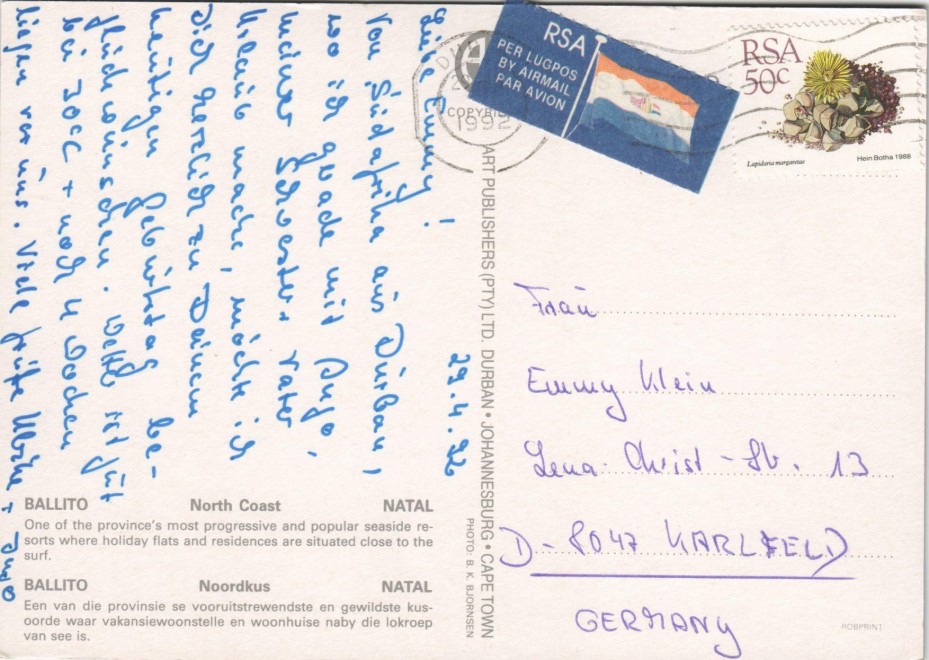 29.4.92
Liebe Emmy!
Von Südafrika aus Durban,
wo ich gerade mit Ingo,
meiner Schwester + Vater
Urlaub mache, möchte ich
Dich herzlich zu Deinem
heutigen Geburtstag be-
glückwünschen. Wetter ist gut
bei 30°C + noch 4 Wochen
liegen vor uns. Viele Grüße Ulrike + Ingo
BALLITO North Coast NATAL
One of the province's most progressive and popular seaside re-
sorts where holiday flats and residences are situated close to the
surf.
BALLITO Noordkus NATAL
Een van die provinsie se vooruitstrewendste en gewildste kus-
oorde waar vakansiewoonstelle en woonhuise naby die lokroep
van see is.
COPYRIG
1992
ART PUBLISHERS (PTY) LTD. DURBAN • JOHANNESBURG • CAPE TOWN
PHOTO: B. K. BJORNSEN
RSA
PER LUGPOS
BY AIRMAIL
PAR AVION
RSA
50c
Lapidaria margaretae
Hein Botha 1988
Frau
Emmy Klein
Lena-Christ-Str. 13
D-8047 KARLSFELD
GERMANY
ROBPRINT